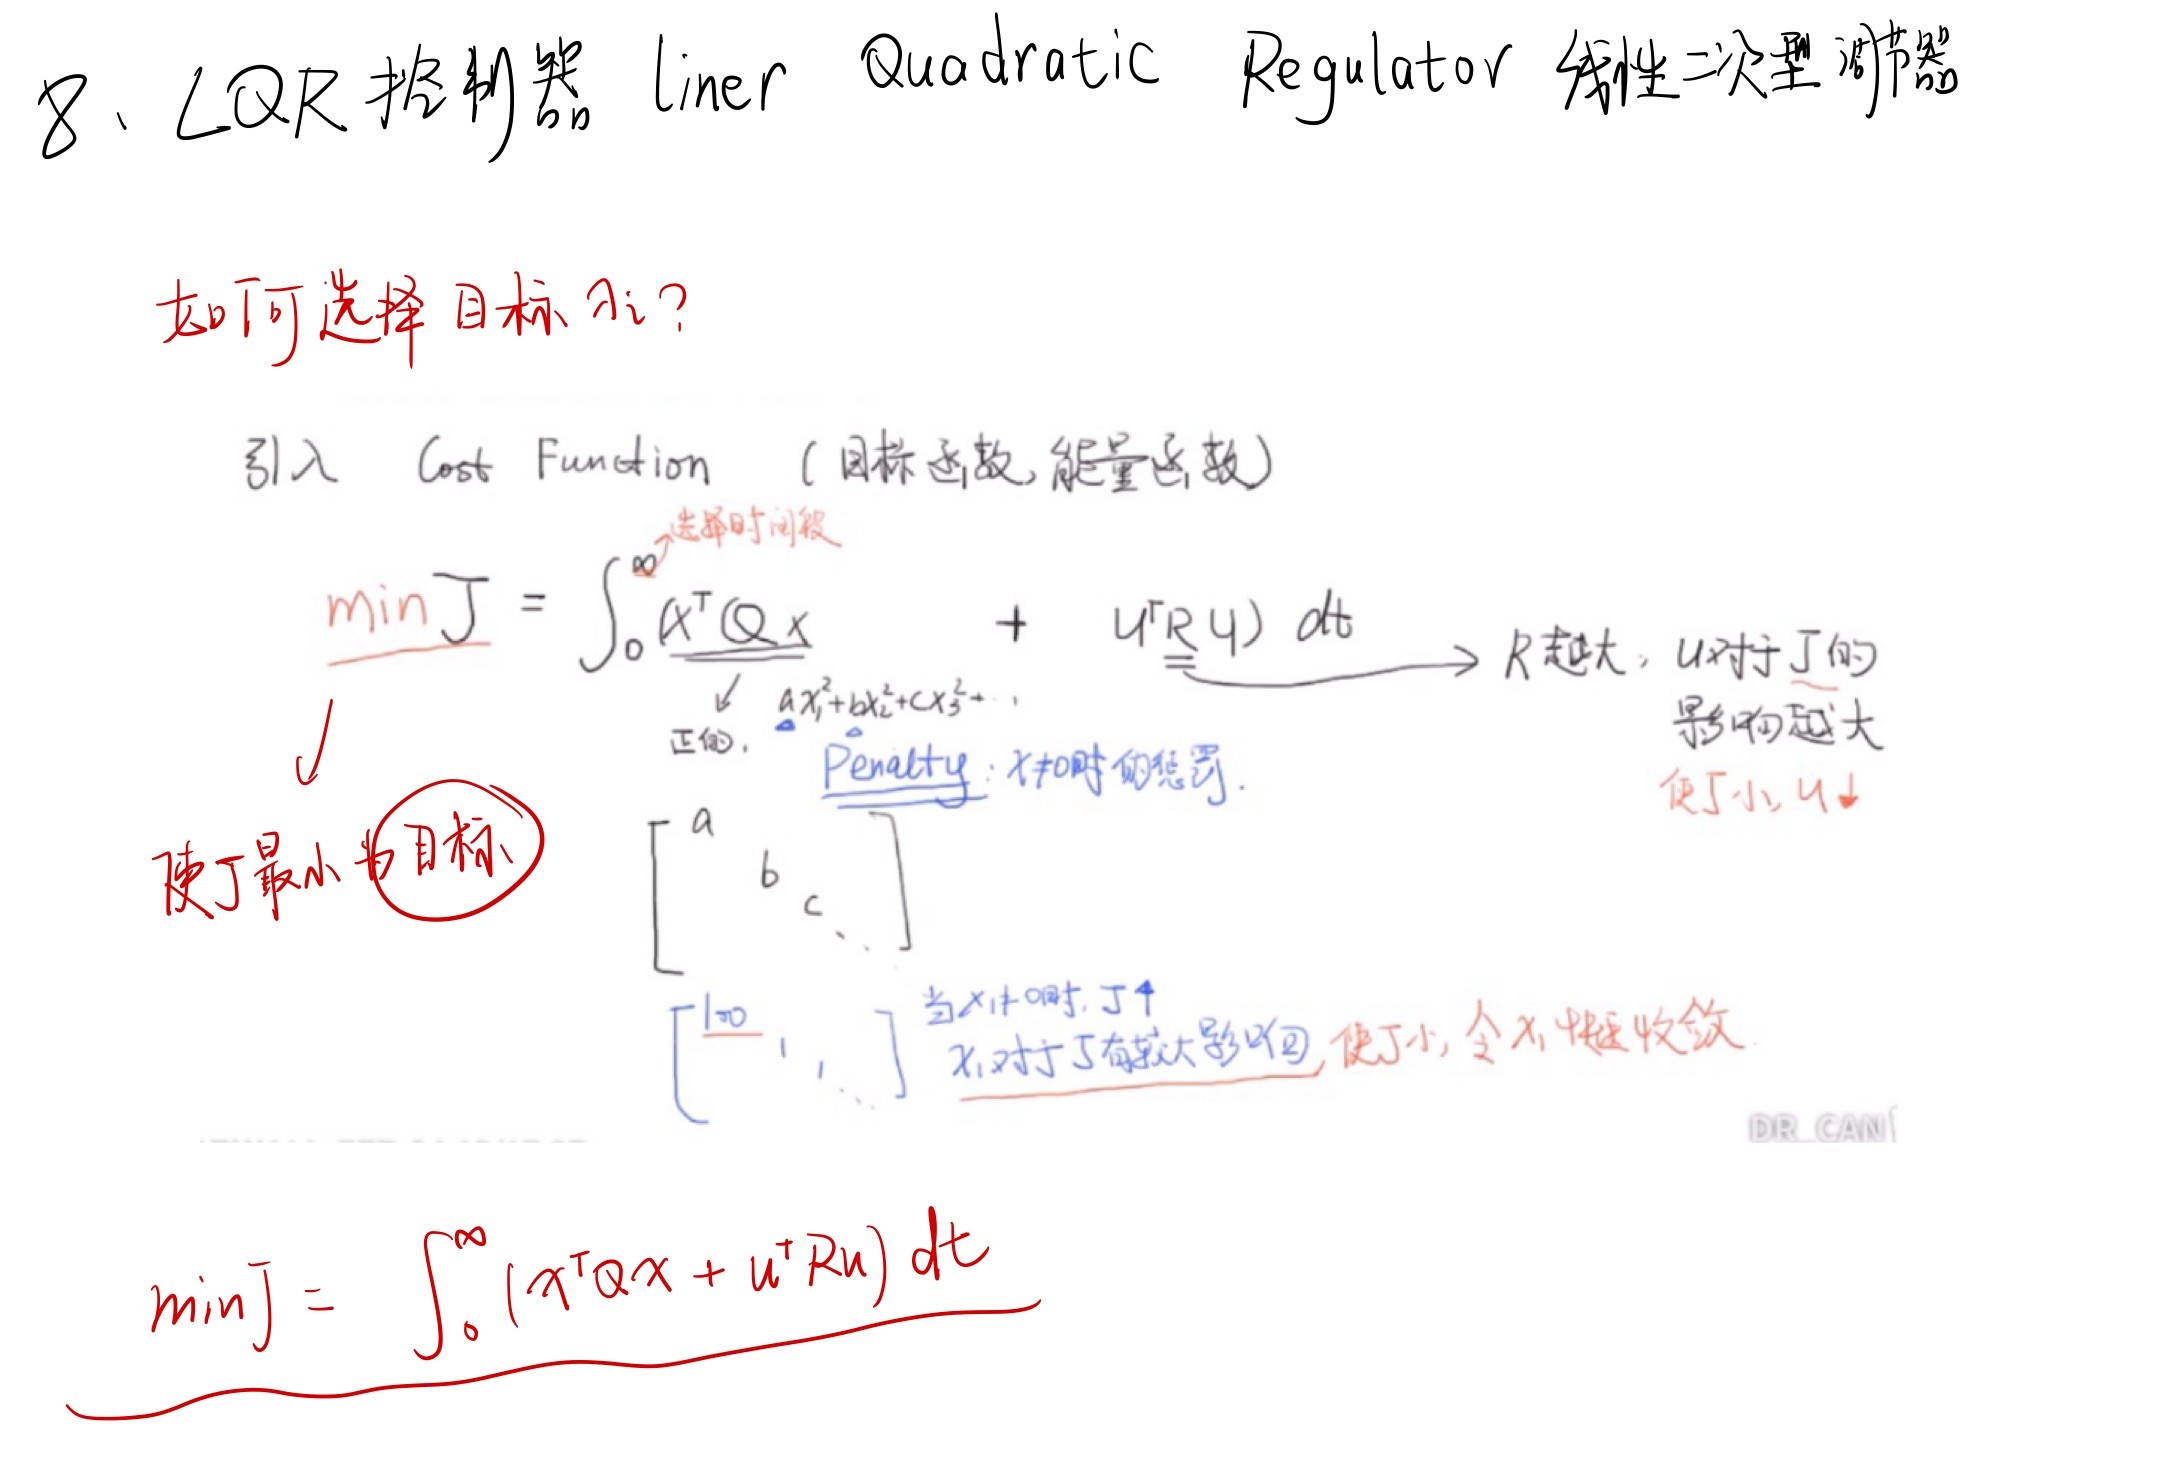 8、LQR 控制器 liner Quadratic Regulator 线性二次型调节器
如何选择目标 λi?
引入 Cost Function (目标函数,能量函数)
选择时间段
min J = ∫₀^∞ (xᵀQx + uᵀRu) dt
R越大,u对于J的
影响越大
使J小,u↓
正的,
ax₁²+bx₂²+cx₃²+...
Penalty: x≠0时的惩罚.
使J最小为目标
a
b
c
100
1
1
当x₁≠0时,J↑
x₁对于J有较大影响,使J小,令x₁快速收敛.
DR_CAN
min J = ∫₀^∞ (xᵀQx + uᵀRu) dt